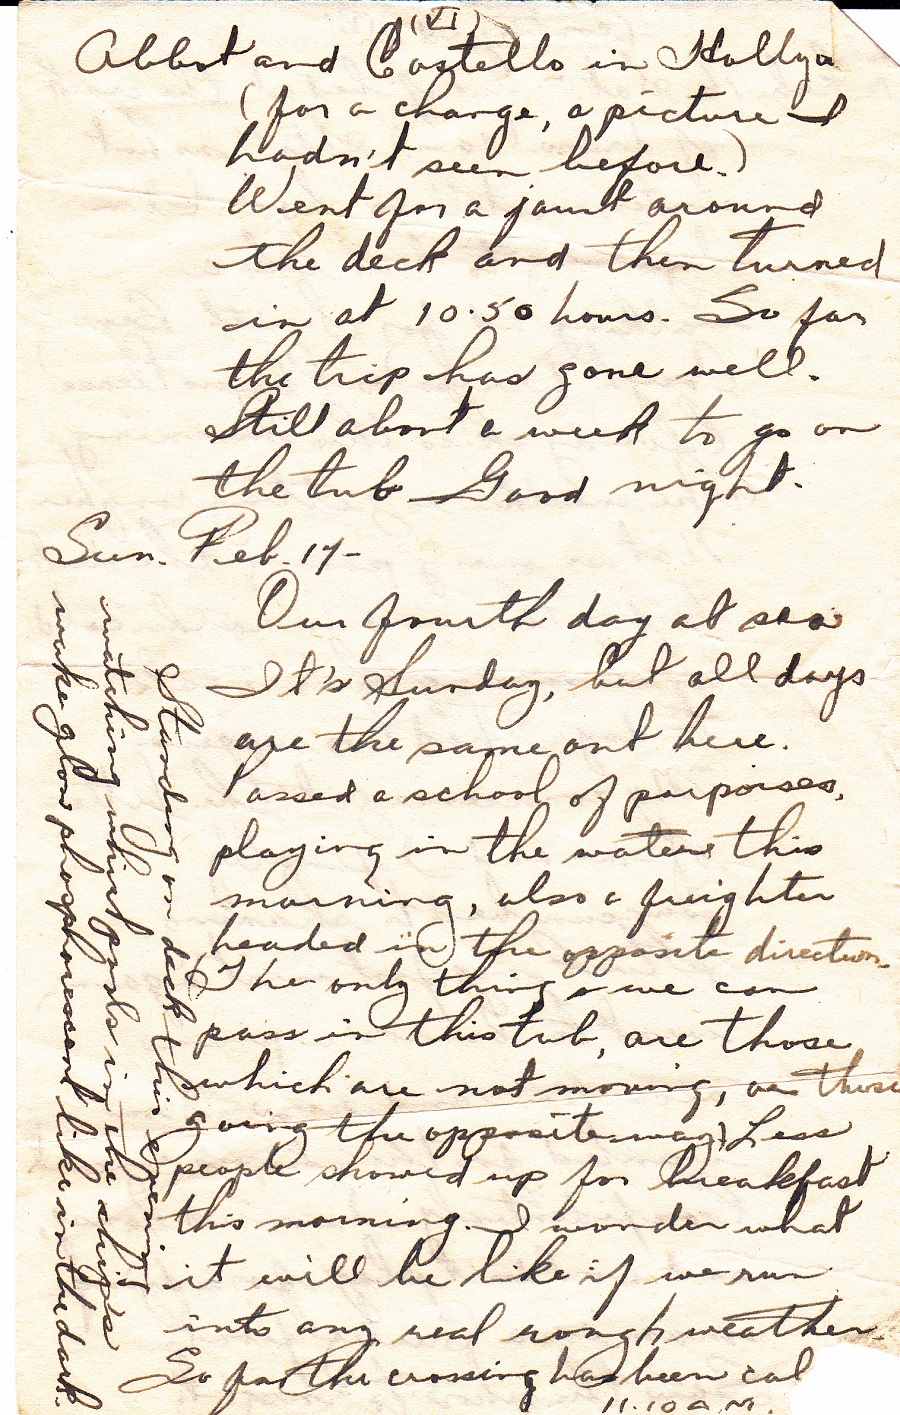 (VI)
Abbot and Costello in Hollyw
(for a change, a picture I
hadn't seen before.)
Went for a jaunt around
the deck and then turned
in at 10.50 hours. So far
the trip has gone well.
Still about a week to go on
the tub Good night.
Sun. Feb. 17-
Our fourth day at sea
It's Sunday, but all days
are the same out here.
Passed a school of porpoises,
playing in the waters this
morning, also a freighter
headed in the opposite direction.
(The only things we can
pass in this tub, are those
which are not moving, or those
going the opposite way) Less
people showed up for breakfast
this morning. I wonder what
it will be like if we run
into any real rough weather.
So far the crossing has been cal
11.10 A.M.
Standing on deck this evening
watching whirlpools in the ship's
wake glow phosphorescent like in the dark.